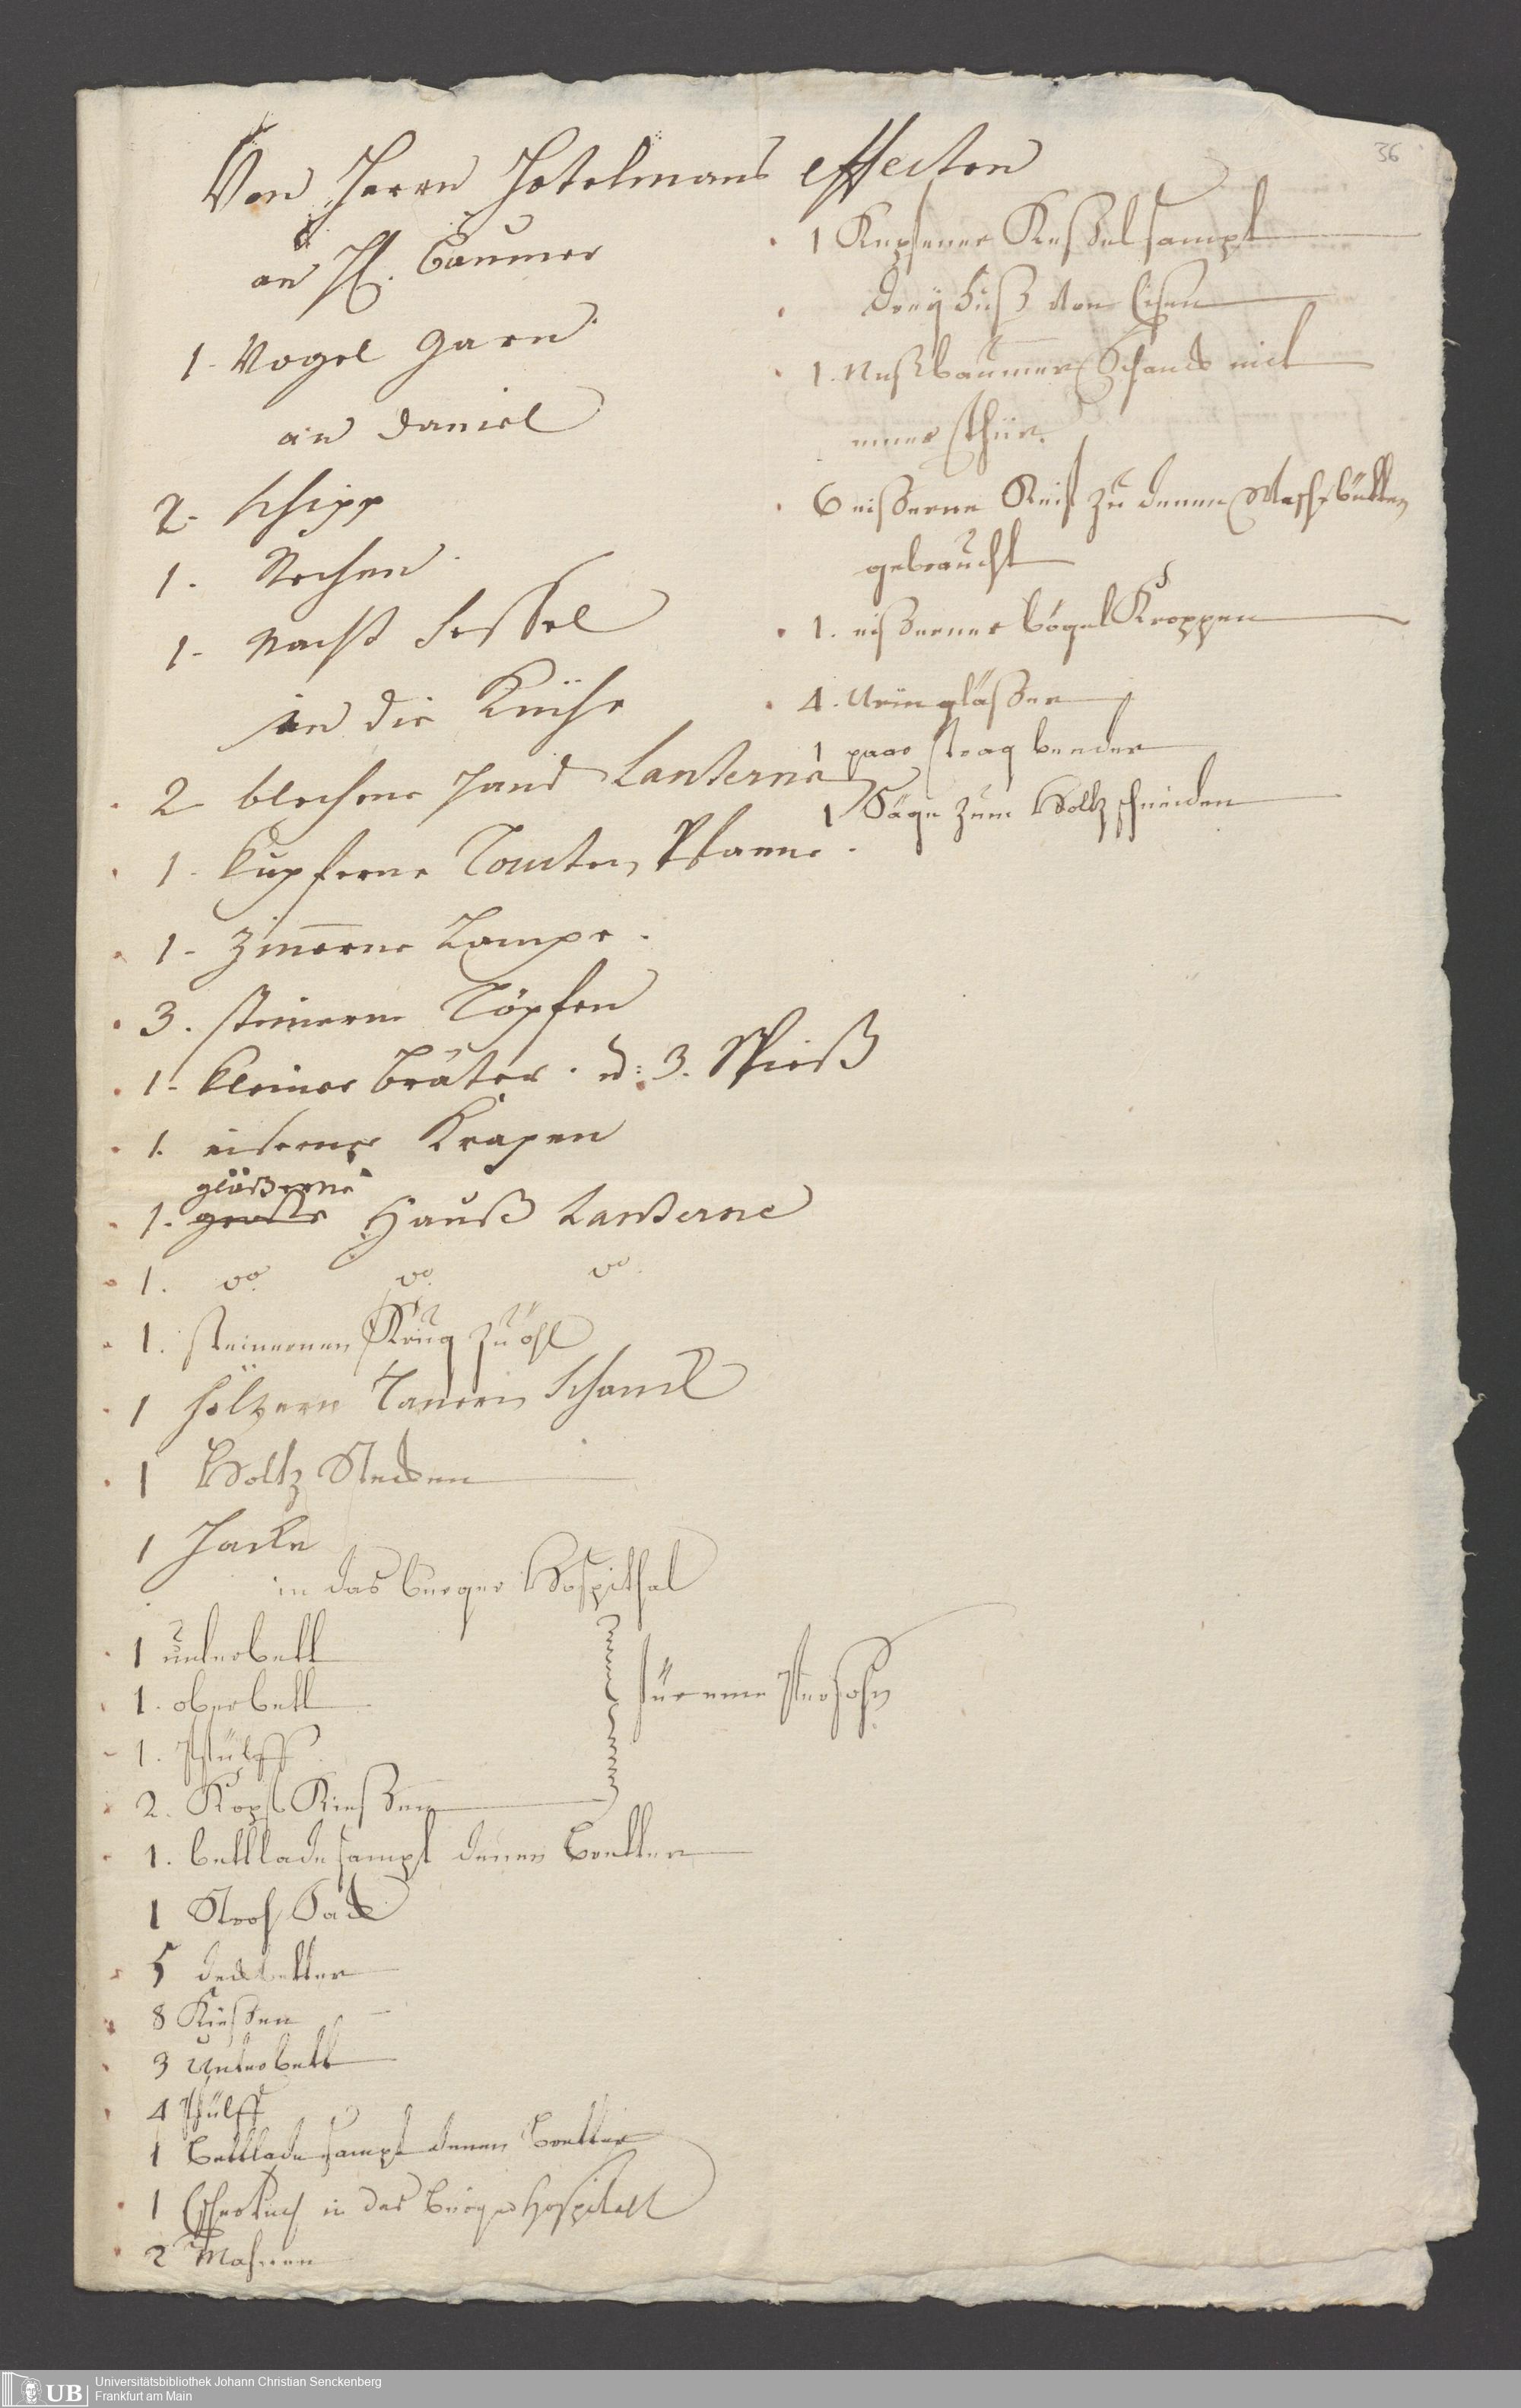 36
Von Herrn Hotelmans effecten
an H. Baumer
1. Vogel garn
an Daniel
2. schipp
1. Rechen
1. Nacht sessel
in die Küche
2 blechene Hand Lanterne
1. kupferne Tourten Pfanne
1. zinnerne Lampe.
3. steinerne Töpfen
1. kleiner bräter. u: 3. Spieß
1. eiserner Krapen
gläßerne
1. große Hauß Lanterne
1. do. do. do.
1. steinernen Krüg zu öhl
1 höltzern Tannen schanck
1 Holtz Stecken
1 Hacke
in das burger Hospithal
1 unterbett
1. oberbett
für eine Persohn
1. Pfülff
2. Kopf Kießen
1. bettlade sampt denen bretter
1 Stroh Sack
5 deckbetter
8 Kießen
3 Unterbett
4 Pfülff
1 bettlade sampt denen bretter
1 Eschertuch in das Bürger Hospitall
2 Mahnen
1 Kupferner Keßel sampt
drey Fuß von Eisen
1. Nußbaumener Schanck mit
einer thür.
6 eißerne Reif zu denen Waschbütten
gebraucht
1. eißerner bögel Kroppen
4. Uringläßer
1 paar trag bender
1 Säge zum Holtz schneiden
UB Universitätsbibliothek Johann Christian Senckenberg
Frankfurt am Main